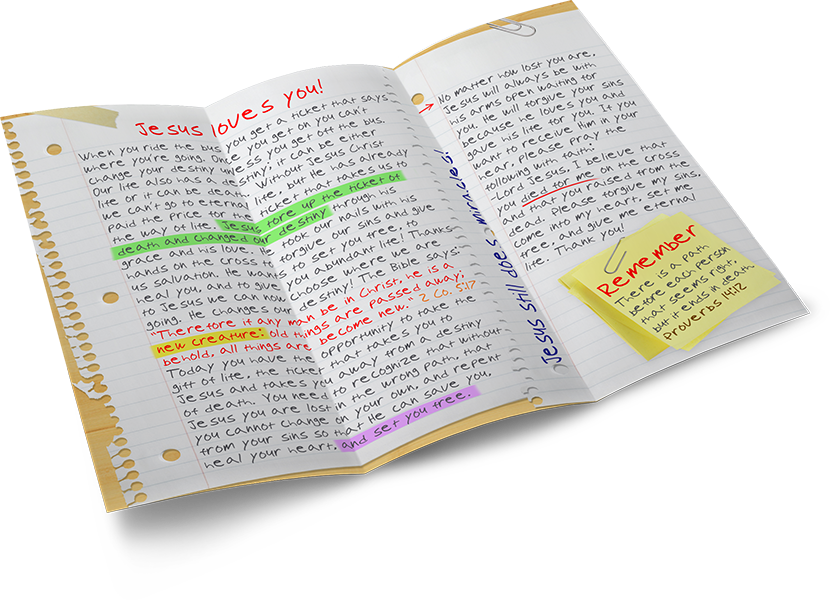 Jesus loves you!
When you ride the you get a ticket that says
where you're going. Once you get on you can't
change your destiny unless you get off the bus.
Our life also has destiny, it can be either
life or it can be death. Without Jesus Christ
we can't go to eternal life, but He has already
paid the price ticket that takes us to
the way to life. Jesus tore up the ticket of
death and changed our destiny through his
grace and his love. took nails with his
hands on the cross forgive our sins and give
us salvation. He wants to set you free, to
heal you, and to give you abundant life! Thanks
to Jesus we can now choose where we are
going. He changes destiny! The Bible says:
"Therefore if any man be in Christ, he is a
new creature: old things are passed away;
behold, all things are become new." 2 Co. 5:17
Today you have the opportunity to take the
gift of life, the that takes you to
Jesus and takes you away from a destiny
of death. You need to recognize that without
Jesus you are lost in the wrong path, that
you cannot change on your own, and repent
from your sins so that He can save you,
heal your heart, and set you free.
Jesus still does miracles!
No matter how lost you are,
Jesus will always be with
his arms open waiting for
you. He will forgive your sins
because he loves you and
gave his life for you. If you
want to receive Him in your
hear, please pray the
following with faith:
Lord Jesus, I believe that
you died for me on the cross
and that you raised from the
dead. Please forgive my sins,
come into my heart, set me
free, and give me eternal
life. Thank you
Remember
There is a path
before each person
that seems right,
but it ends in death.
Proverbs 14:12